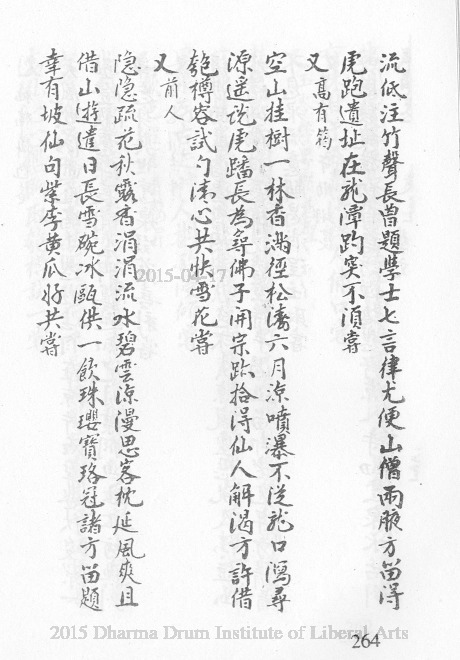 流低注竹聲長曽題學士七言律尤便山僧兩腋方留得
虎跑遺址在龍潭趵突不須嘗
又高有筠
空山挂樹一林香滿徑松濤六月凉噴瀑不従龍口瀉尋
源遥說虎蹯長為尋佛子開宗跡拾得仙人解渴方許借
匏樽容試勺清心共快雪花嘗
又前人
隐隐疏花秋露香涓涓流水碧雲凉漫思客枕延風爽且
借山遊遣日長雪碗冰甌供一飲珠璎寶珞冠諸方留題
幸有坡仙句紫李黄瓜好共嘗
2015-04-17
2015 Dharma Drum Institute of Liberal Arts
264